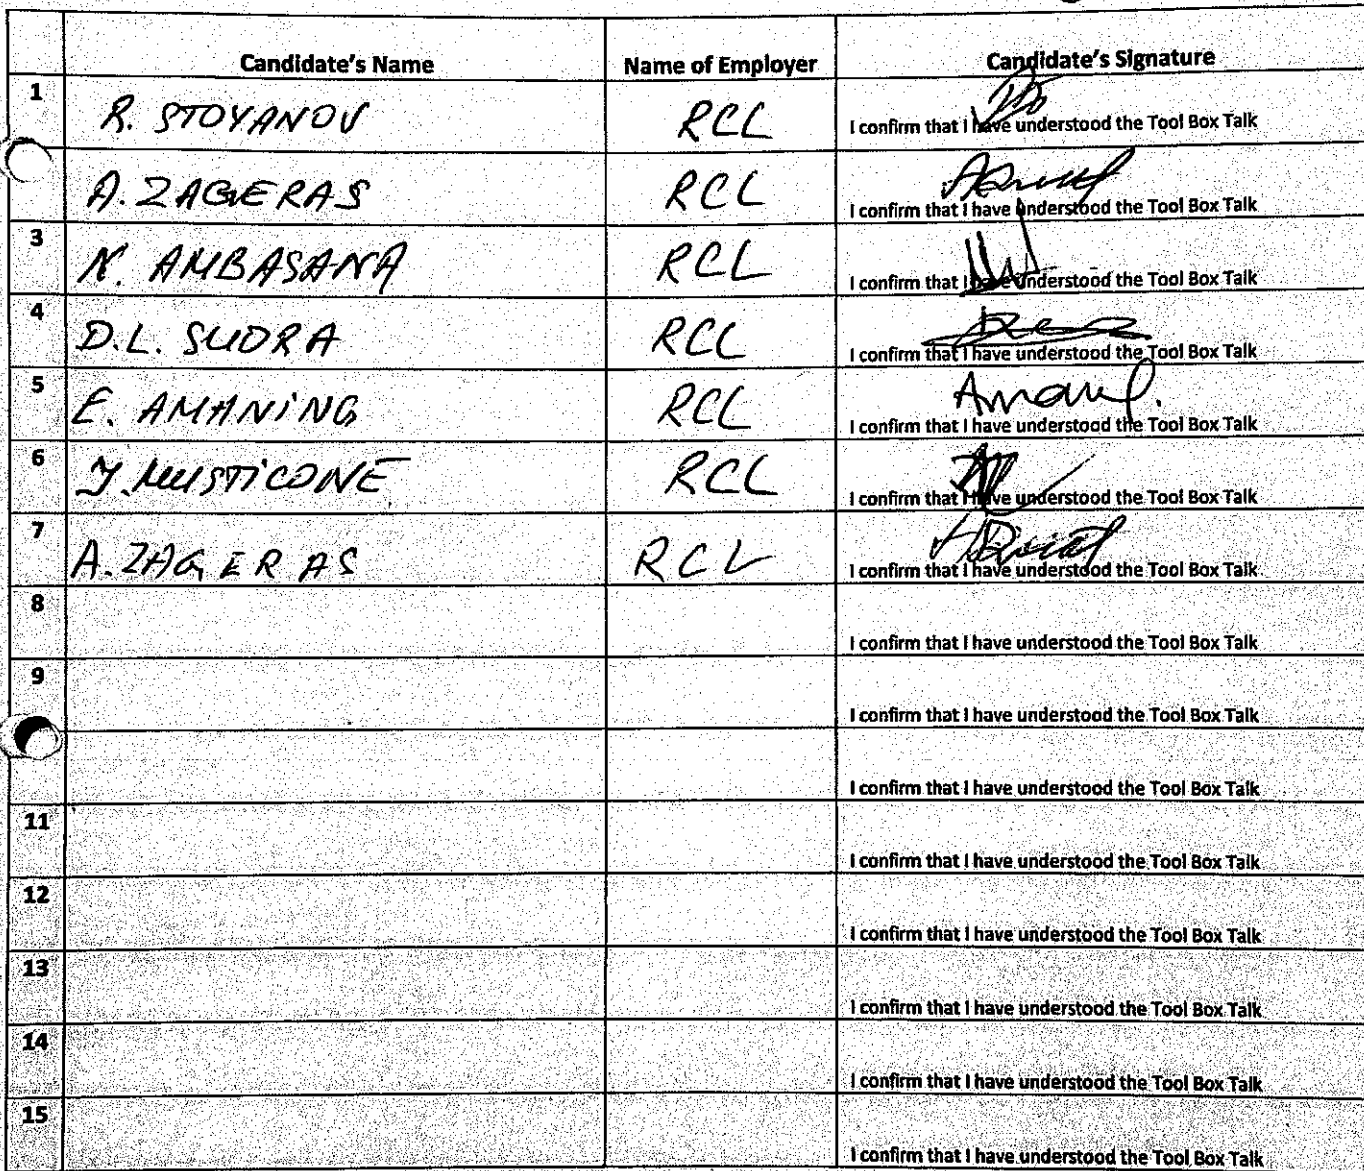 Candidate's Name Name of Employer Candidate's Signature
1 R. STOYANOV RCL
I confirm that I have understood the Tool Box Talk
A. ZAGERAS RCL
I confirm that I have understood the Tool Box Talk
3 N. AMBASANA RCL
I confirm that I have understood the Tool Box Talk
4 D.L. SUDRA RCL
I confirm that I have understood the Tool Box Talk
5 E. AMANING RCL
I confirm that I have understood the Tool Box Talk
6 RCL
I confirm that I have understood the Tool Box Talk
7 A. ZAGERAS RCL
I confirm that I have understood the Tool Box Talk
8
I confirm that I have understood the Tool Box Talk
9
I confirm that I have understood the Tool Box Talk
I confirm that I have understood the Tool Box Talk
11
I confirm that I have understood the Tool Box Talk
12
I confirm that I have understood the Tool Box Talk
13
I confirm that I have understood the Tool Box Talk
14
I confirm that I have understood the Tool Box Talk
15
I confirm that I have understood the Tool Box Talk